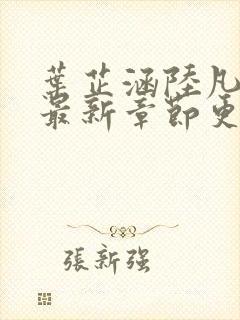 葉芷涵陸凡
最新章節更
張新強